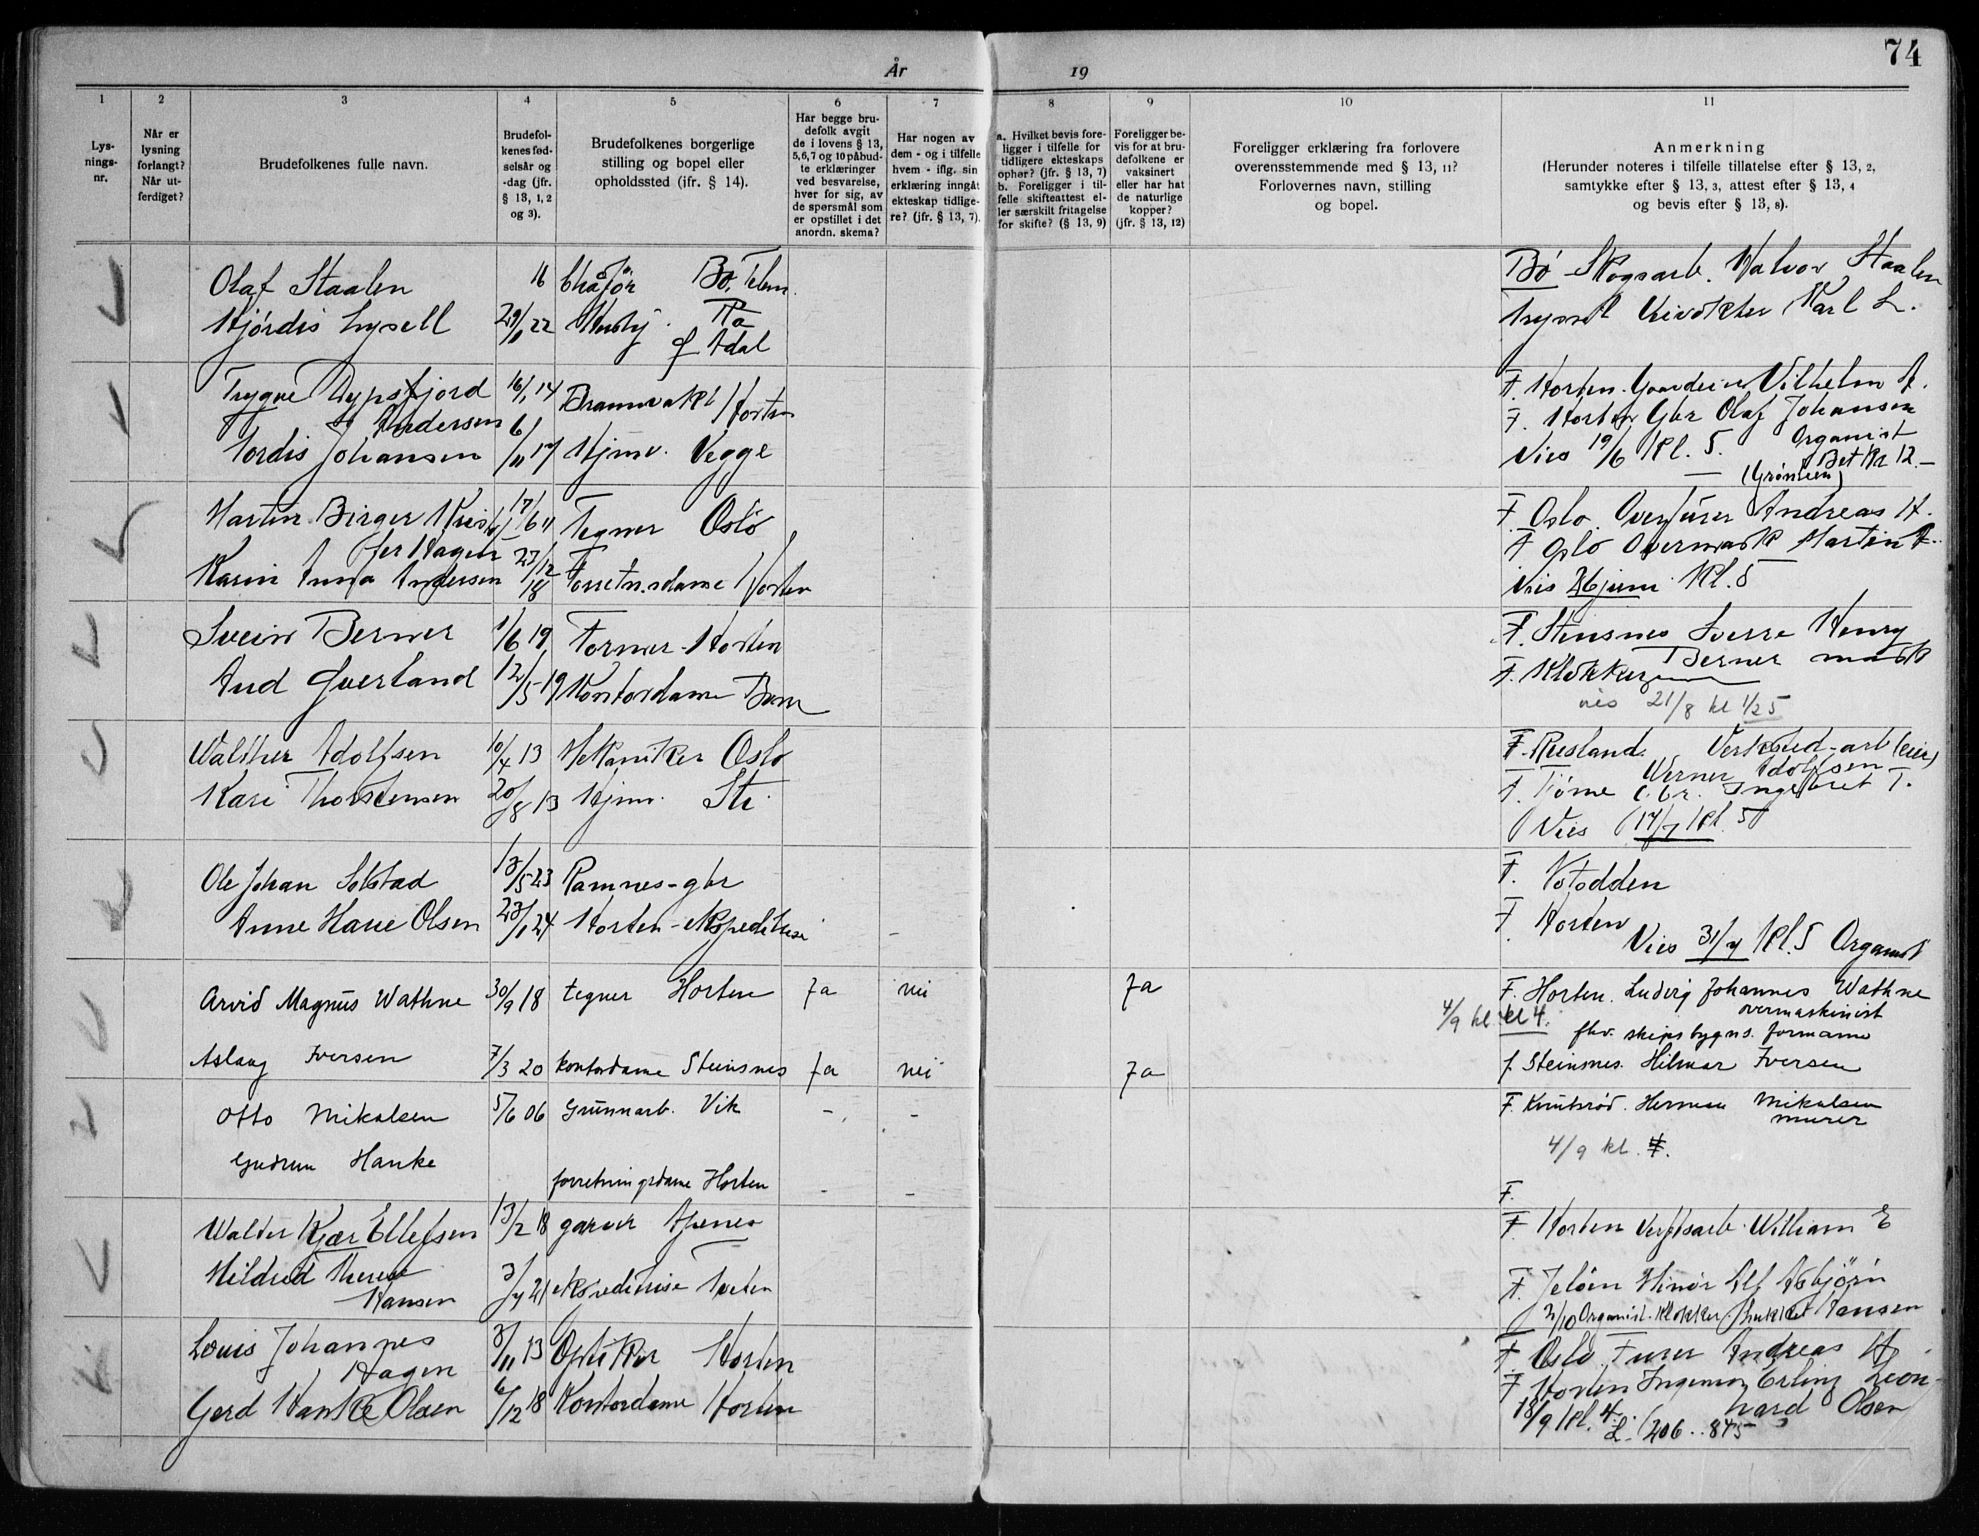 År 19
74
1 2 3 4 5 6 7 8 9 10 11
Lys-
nings-
nr.
Når er
lysning
forlangt?
Når ut-
ferdiget?
Brudefolkenes fulle navn.
Brudefol-
kenes fød-
selsår og
-dag (jfr.
§ 13, 1, 2
og 3).
Brudefolkenes borgerlige
stilling og bopel eller
opholdssted (ifr. § 14).
Har begge bru-
defolk avgit
de i lovens § 13,
5,6,7 og 10 påbud-
te erklæringer
ved besvarelse,
hver for sig, av
de spørsmål som
er opstillet i det
anordn. skema?
Har nogen av
dem - og i tilfelle
hvem - iflg. sin
erklæring inngåt
ekteskap tidlige-
re? (jfr. § 13, 7).
a. Hvilket bevis fore-
ligger i tilfelle for
tidligere ekteskaps
ophør? (jfr. § 13, 7)
b. Foreligger i til-
felle skifteattest el-
ler særskilt fritagelse
for skifte? (§ 13, 9)
Foreligger be-
vis for at bru-
defolkene er
vaksinert
eller har hat
de naturlige
kopper?
(jfr. § 13, 12)
Foreligger erklæring fra forlovere
overensstemmende med § 13, 11?
Forlovernes navn, stilling
og bopel.
Anmerkning
(Herunder noteres i tilfelle tillatelse efter § 13, 2,
samtykke efter § 13, 3, attest efter § 13, 4
og bevis efter § 13, 8).
Olaf Staalen 16 Bø, Telem. Bø Skogsarb. Halvor Staalen
Hjørdis Lysell 22 Karl L.
Adal
Trygve Dypsfjord 16/1 14 Brannvakt Horten F. Horten Vilhelm A.
Andersen F. Horten Gbr Olaf Johansen
Tordis Johansen 6/11 17 Hjmv. Vegge Vies 19/6 kl. 5. Organist
Bet kr 12.-
Martin Birger Kristof- Tegner Oslo F. Oslo. Andreas H.
fer Hagen F Oslo Overmask Martin A.
Karin Anna Andersen 23/12 18 Forretn.dame Horten Vies 26 juni kl. 5
Svein Berner 1/6 19 Former Horten F. Steinsnes Sverre Henry
Berner mask
Aud Gverland 12/5 19 Kontordame F. Klokkeren
vies 21/8 kl 1/2 5
Walther Adolfsen 10/4 13 Mekaniker Oslo F. Verksted-arb (eier)
Werner Adolfsen
Kari Thorstensen 20/8 13 Hjmv. F. Tjøme Gbr. Ingebret T.
Vies 17/7 kl. 5
Ole Johan Solstad 13/5 23 Ramnes - gbr F. Notodden
Anne Marie Olsen 23/1 24 Horten - ekspeditrise - F. Horten
Vies 31/7 kl. 5 Organist
Arvid Magnus Wathne 30/9 18 tegner Horten Ja nei Ja F. Horten. Ludvig Johannes Wathne
4/9 kl kl 4. overmaskinist
fhv. skipsbygns. formann
Aslaug Iversen 7/3 20 kontordame Steinsnes Ja nei Ja f. Steinsnes. Hilmar Iversen
Otto Mikalsen 5/6 06 Grunnarb. Vik - - F. Knutsrød. Herman Mikalsen
murer
4/9 kl.
Gudrun Hanke forretningsdame Horten - - F.
Walter Kjær Ellefsen 13/2 18 garver F. Horten Verftsarb. William E
Mildred Therese 3/7 21 ekspeditrise F. Jeløen Alf Asbjørn
Hansen 2/10 Organist. klokker Hansen
Louis Johannes 3/11 13 Optiker Horten F. Oslo. Furer Andreas H
Hagen
Gerd Hanke Olsen 6/12 18 Kontordame Horten F Horten Ingeniør Erling Leon-
18/9 kl. 4. hard Olsen